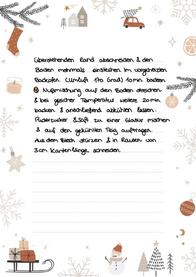 überstehenden Rand abschneiden & den
Boden mehrmals einstechen. Im vorgeheizten
Backofen (Umluft 170 Grad) 10min backen.
Nußmischung auf den Boden streichen
& bei gleicher Temperatur weitere 20min
backen & anschließend abkühlen lassen.
Puderzucker & Saft zu einer Glasur mischen
& auf den gekühlten Teig auftragen.
Aus dem Blech stürzen & in Rauten von
3cm Kantenlänge schneiden.